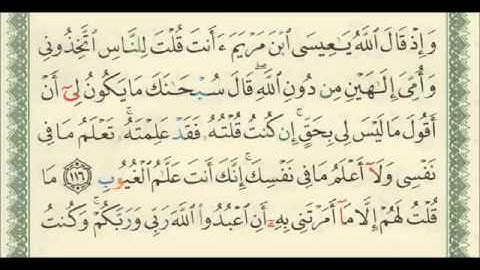 وَإِذْ قَالَ ٱللَّهُ يَـٰعِيسَى ٱبْنَ مَرْيَمَ ءَأَنتَ قُلْتَ لِلنَّاسِ ٱتَّخِذُونِى
وَأُمِّىَ إِلَـٰهَيْنِ مِن دُونِ ٱللَّهِ ۖ قَالَ سُبْحَـٰنَكَ مَا يَكُونُ لِىٓ أَنْ
أَقُولَ مَا لَيْسَ لِى بِحَقٍّ ۚ إِن كُنتُ قُلْتُهُۥ فَقَدْ عَلِمْتَهُۥ ۚ تَعْلَمُ مَا فِى
نَفْسِى وَلَآ أَعْلَمُ مَا فِى نَفْسِكَ ۚ إِنَّكَ أَنتَ عَلَّـٰمُ ٱلْغُيُوبِ ١١٦ مَا
قُلْتُ لَهُمْ إِلَّا مَآ أَمَرْتَنِى بِهِۦٓ أَنِ ٱعْبُدُوا۟ ٱللَّهَ رَبِّى وَرَبَّكُمْ ۚ وَكُنتُ